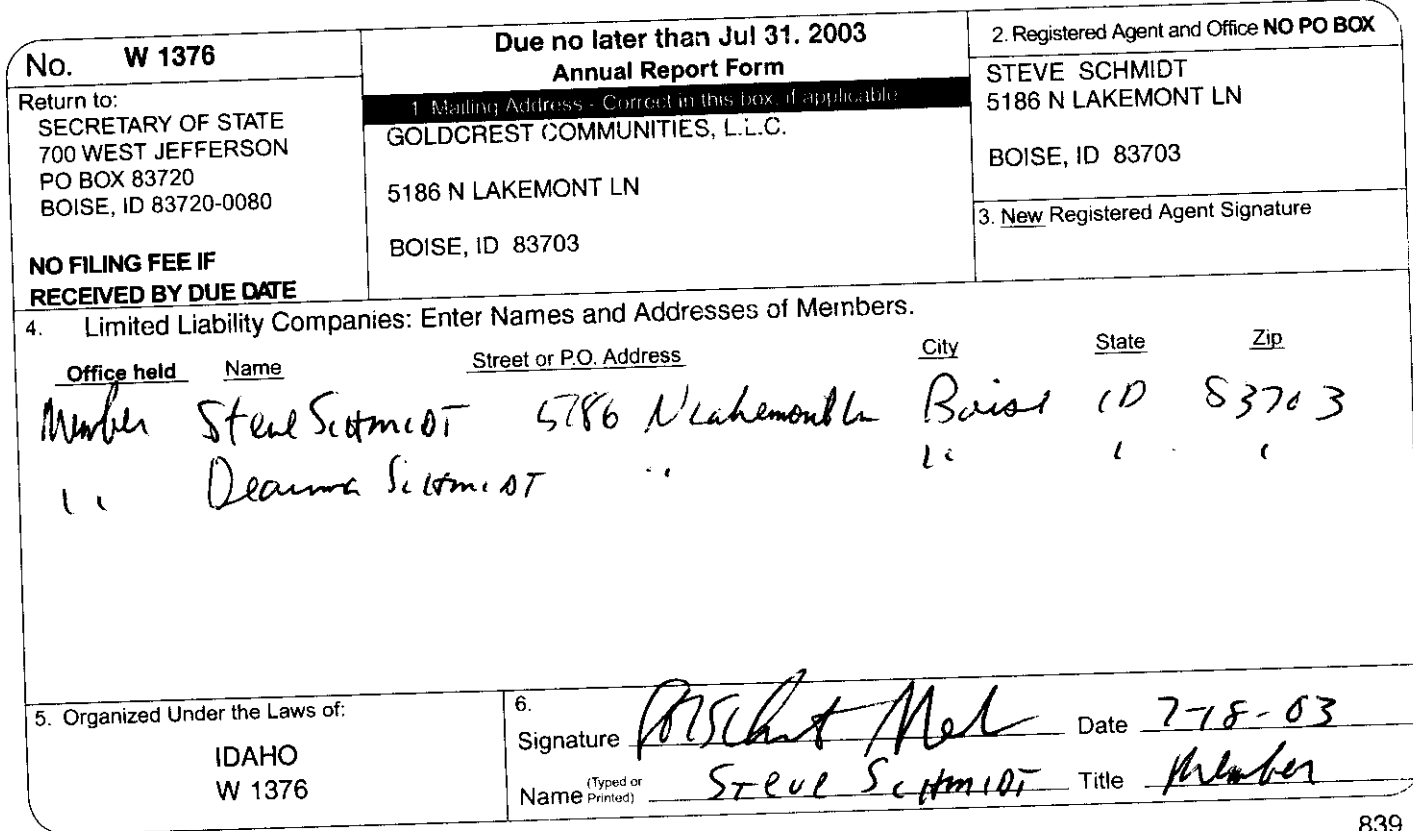 No. W 1376
Return to:
SECRETARY OF STATE
700 WEST JEFFERSON
PO BOX 83720
BOISE, ID 83720-0080
NO FILING FEE IF
RECEIVED BY DUE DATE
Due no later than Jul 31. 2003
Annual Report Form
1. Mailing Address - Correct in this box, if applicable
GOLDCREST COMMUNITIES, L.L.C.
5186 N LAKEMONT LN
BOISE, ID 83703
2. Registered Agent and Office NO PO BOX
STEVE SCHMIDT
5186 N LAKEMONT LN
BOISE, ID 83703
3. New Registered Agent Signature
4. Limited Liability Companies: Enter Names and Addresses of Members.
Office held Name Street or P.O. Address City State Zip
Member Steve SCHMIDT 5186 N Lakemont Ln Boise ID 83703
" Deanna SCHMIDT " " " "
5. Organized Under the Laws of:
IDAHO
W 1376
6.
Signature Date 7-18-03
Name (Typed or Printed) Steve SCHMIDT Title Member
839